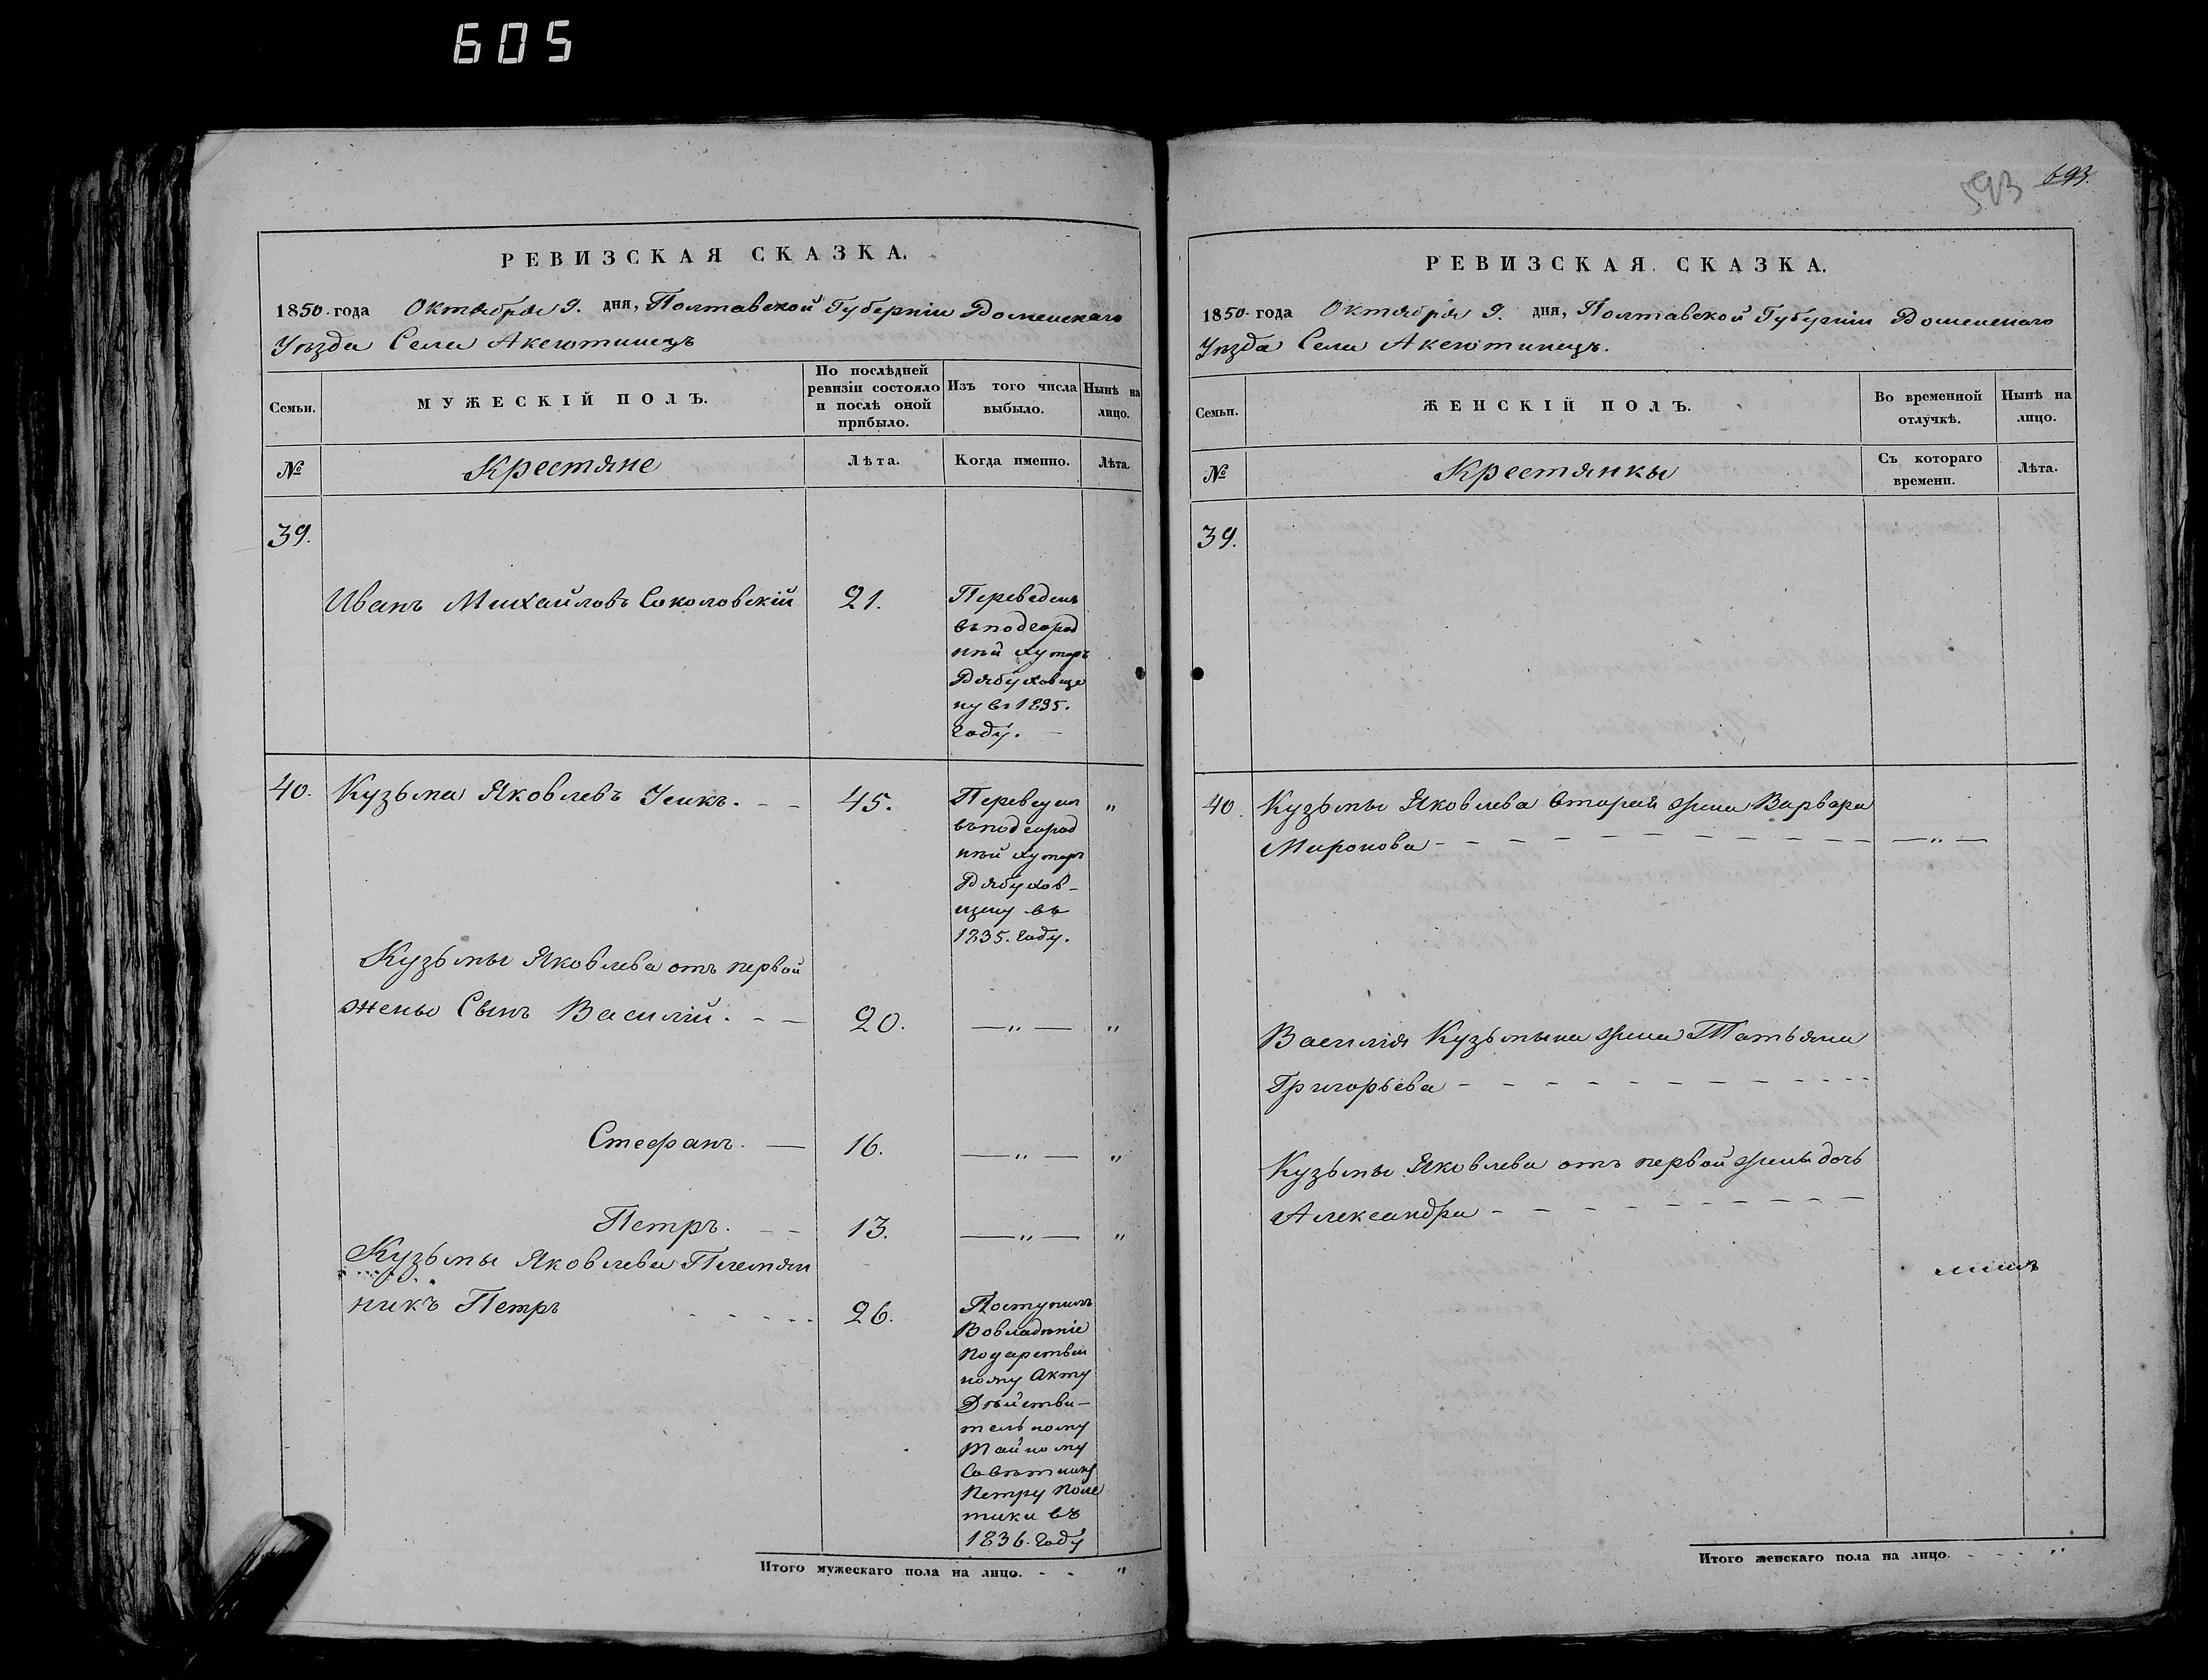 605
РЕВИЗСКАЯ СКАЗКА.
1850. года Октября 9. дня, Полтавской Губерніи Роменскаго
Уѣзда Села Аксютинецъ
Семьи.
МУЖЕСКІЙ ПОЛЪ.
По послѣдней ревизіи состояло и послѣ оной прибыло.
Изъ того числа выбыло.
Нынѣ на лицо.
№
Крестяне
Лѣта.
Когда именно.
Лѣта.
39.
Иванъ Михайловъ Соколовскій 21.
Переведенъ
въ подгород
ній хуторъ
Рябуховще
ну въ 1835.
году.
40. Кузьма Яковлевъ Усикъ. - - 45. "
Переведенъ
въ подгород
ній хуторъ
Рябухов-
щину въ
1835. году.
Кузьмы Яковлева отъ первой
жены Сынъ Василій. - - 20. —„— "
Стефанъ. — 16. —„— "
Петръ. - - 13. —„— "
Кузьмы Яковлева Племян
никъ Петръ - - - - - 26.
Поступилъ
Во владѣніе
по дарствен
ному Акту
Дѣйстви-
тельному
Тайному
Совѣтнику
Петру Поле
тики въ
1836. году
Итого мужескаго пола на лицо. - - "
593 693.
РЕВИЗСКАЯ СКАЗКА.
1850. года Октября 9. дня, Полтавской Губерніи Роменскаго
Уѣзда Села Аксютинецъ.
Семьи.
ЖЕНСКІЙ ПОЛЪ.
Во временной отлучкѣ.
Нынѣ на лицо.
№
Крестянки
Съ котораго времени.
Лѣта.
39.
40. Кузьмы Яковлева вторая жена Варвара
Миронова - - - - - - - - - - - —„—
Василія Кузьмина жена Татьяна
Григорьева - - - - - - - - - - -
Кузьмы Яковлева отъ первой жены дочь
Александра - - - - - - - - -
Итого женскаго пола на лицо. - - - "